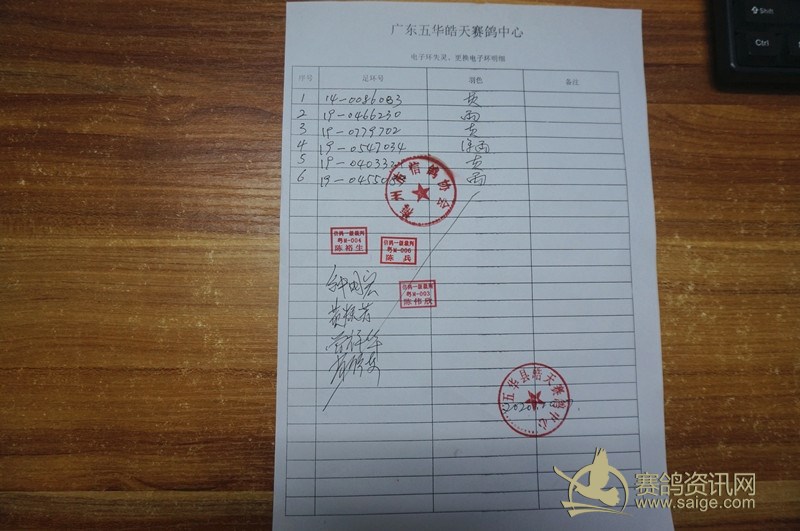 广东五华皓天赛鸽中心
电子环失灵、更换电子环明细
序号 足环号 羽色 备注
1 14-0086083
2 19-0466230 雨
3 19-0779702
4 19-0547034 深雨
5 19-04033
6 19-0455 雨
梅州市信鸽协会
信鸽一级裁判
粤M-004
陈裕生
信鸽一级裁判
粤M-006
陈兵
信鸽一级裁判
粤M-003
陈伟欣
五华县皓天赛鸽中心
赛鸽资讯网
www.saige.com
Shift
Ctrl